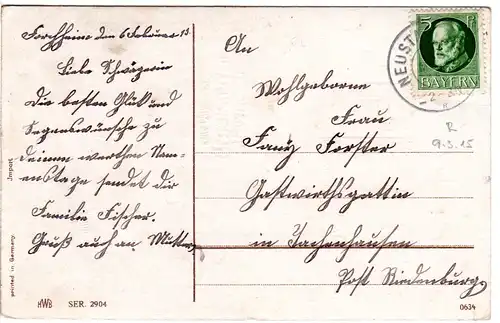 Forchheim den 6 Februar 15.
Liebe Schwägerin
die besten Glük und
Segenswünsche zu
deinem werthen Nam-
enstage sendet dir
Familie Fischer.
Gruß auch an Mutter
An
Wohlgeborne
Frau
Fanz Forster
Gastwirthsgattin
in Jachenhausen
Post Riedenburg.
5 Pf
BAYERN
NEUST
R
9.3.15
Import
printed in Germany.
HWB SER. 2904
0634